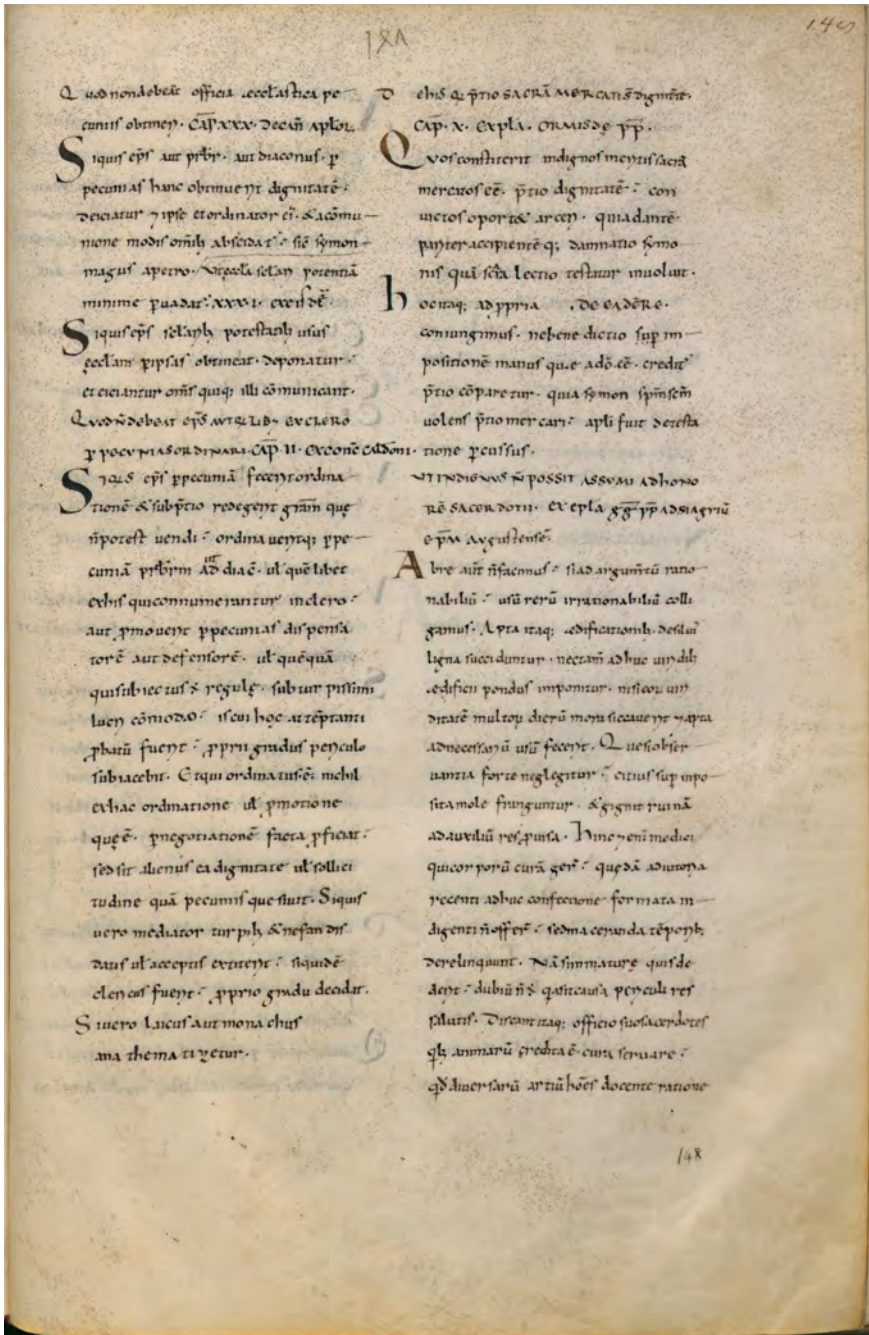 145
Quod non debeāt officia ecclastica pe
cuniis obtineri · CAP̄ XXX · Decan̄ aplor̄
Siquis ep̄s aut prb̄r · aut diaconus · ꝑ
pecunias hanc obtinuerit dignitatē ·
deiciatur ⁊ ipse et ordinator ei᾽ · & a cōmu
nione modis om̄ib᾽ abscidat᾽ · sic̄ symon
magus a petro · Vt eccl̄a sclarē potentiā
minime ꝑuadat · XXXI · ex eisdē
Siquis ep̄s sclarib᾽ potestatib᾽ usus
eccl̄am ꝑ ipsas obtineat · deponatur ·
et eiciantur om̄s quiq; illi cōmunicant ·
Quod n̄ debeat ep̄s aut q̄slib; ex clero
ꝑ pecunias ordinari · CAP̄ II · ex conc̄ caldōni ·
Siq̄s ep̄s ꝑ pecuniā fecerit ordina
tionē & sub p̄tio redegerit gr̄am que
n̄ potest uendi · ordinaueritq; ꝑ pe
cuniā prb̄rm aut diac̄ · ul̄ quēlibet
ex his qui connumerantur in clero ·
aut p̄mouerit ꝑ pecunias dispensa
torē aut defensorē · ul̄ quēquā
qui subiectus ē regulę · sub turpissimi
lucri cōmodo · is cui hoc attēptanti
ꝓbatū fuerit · ꝓprii gradus periculo
subiacebit · Et qui ordinatus ē · nichil
ex hac ordinatione ul̄ ꝓmotione
que ē · ꝑ negotiationē facta ꝓficiat ·
sed sit alienus ea dignitate ul̄ sollici
tudine quā pecuniis quesiuit · Siquis
uero mediator turpib᾽ & nefandis
datis ul̄ acceptis extiterit · siquidē
clericus fuerit · ꝓprio gradu decidat ·
Si uero laicus aut monachus
anathematizetur ·
De his q̄ p̄tio sacrā mercant᾽ dignitatē ·
CAP̄ · X · ex epl̄a · Ormisdę pp̄ ·
Quos constiterit indignos meritis sacrā
mercatos eē · p̄tio dignitatē · con
uictos oport& arceri · quia dantē
pariter accipientēq; damnatio symo
nis quā sc̄a lectio testatur inuoluit ·
hoc itaq; ad ꝓpria · De eadē re ·
coniungimus · ne benedictio sup̄ im
positionē manus que a dō cē · credit᾽
p̄tio cōparetur · quia symon sp̄m sc̄m
uolens p̄tio mercari · apl̄i fuit detesta
tione ꝑcussus ·
Vt indignus n̄ possit assumi ad hono
rē sacerdotii · ex epl̄a gg̅ pp̄ ad siagriū
epm̄ augustensē ·
Ab re aūt n̄ facimus · si ad argum̄tū ratio
nabiliū · usū rerū irrationabiliū colli
gamus · Apta itaq; edificationib᾽ de silui᾽
ligna succiduntur · nec tam̄ adhuc uiridib᾽
edificii pondus imponitur · nisi eoꝝ uiri
ditatē multoꝝ dierū mora siccauerit ⁊ apta
ad necessariū usū fecerit · Que si obser
uantia forte neglegitur · citius sup̄inpo
sita mole franguntur · & gignit ruinā
ad auxiliū res ꝓuisa · Hinc ⁊ enī medici
qui corporū curā ger᾽ · quedā adiutoria
recenti adhuc confectione formata in
digenti n̄ offer᾽ · sed maceranda tēporib᾽
derelinquunt · Nā si inmature quis de
derit · dubiū n̄ ē q̄a sit causa periculi res
salutis · Discant itaq; officio suo sacerdotes
q̄b᾽ animarū credita ē · cura seruare ·
q̄d diuersarū artiū hōēs docente ratione
148